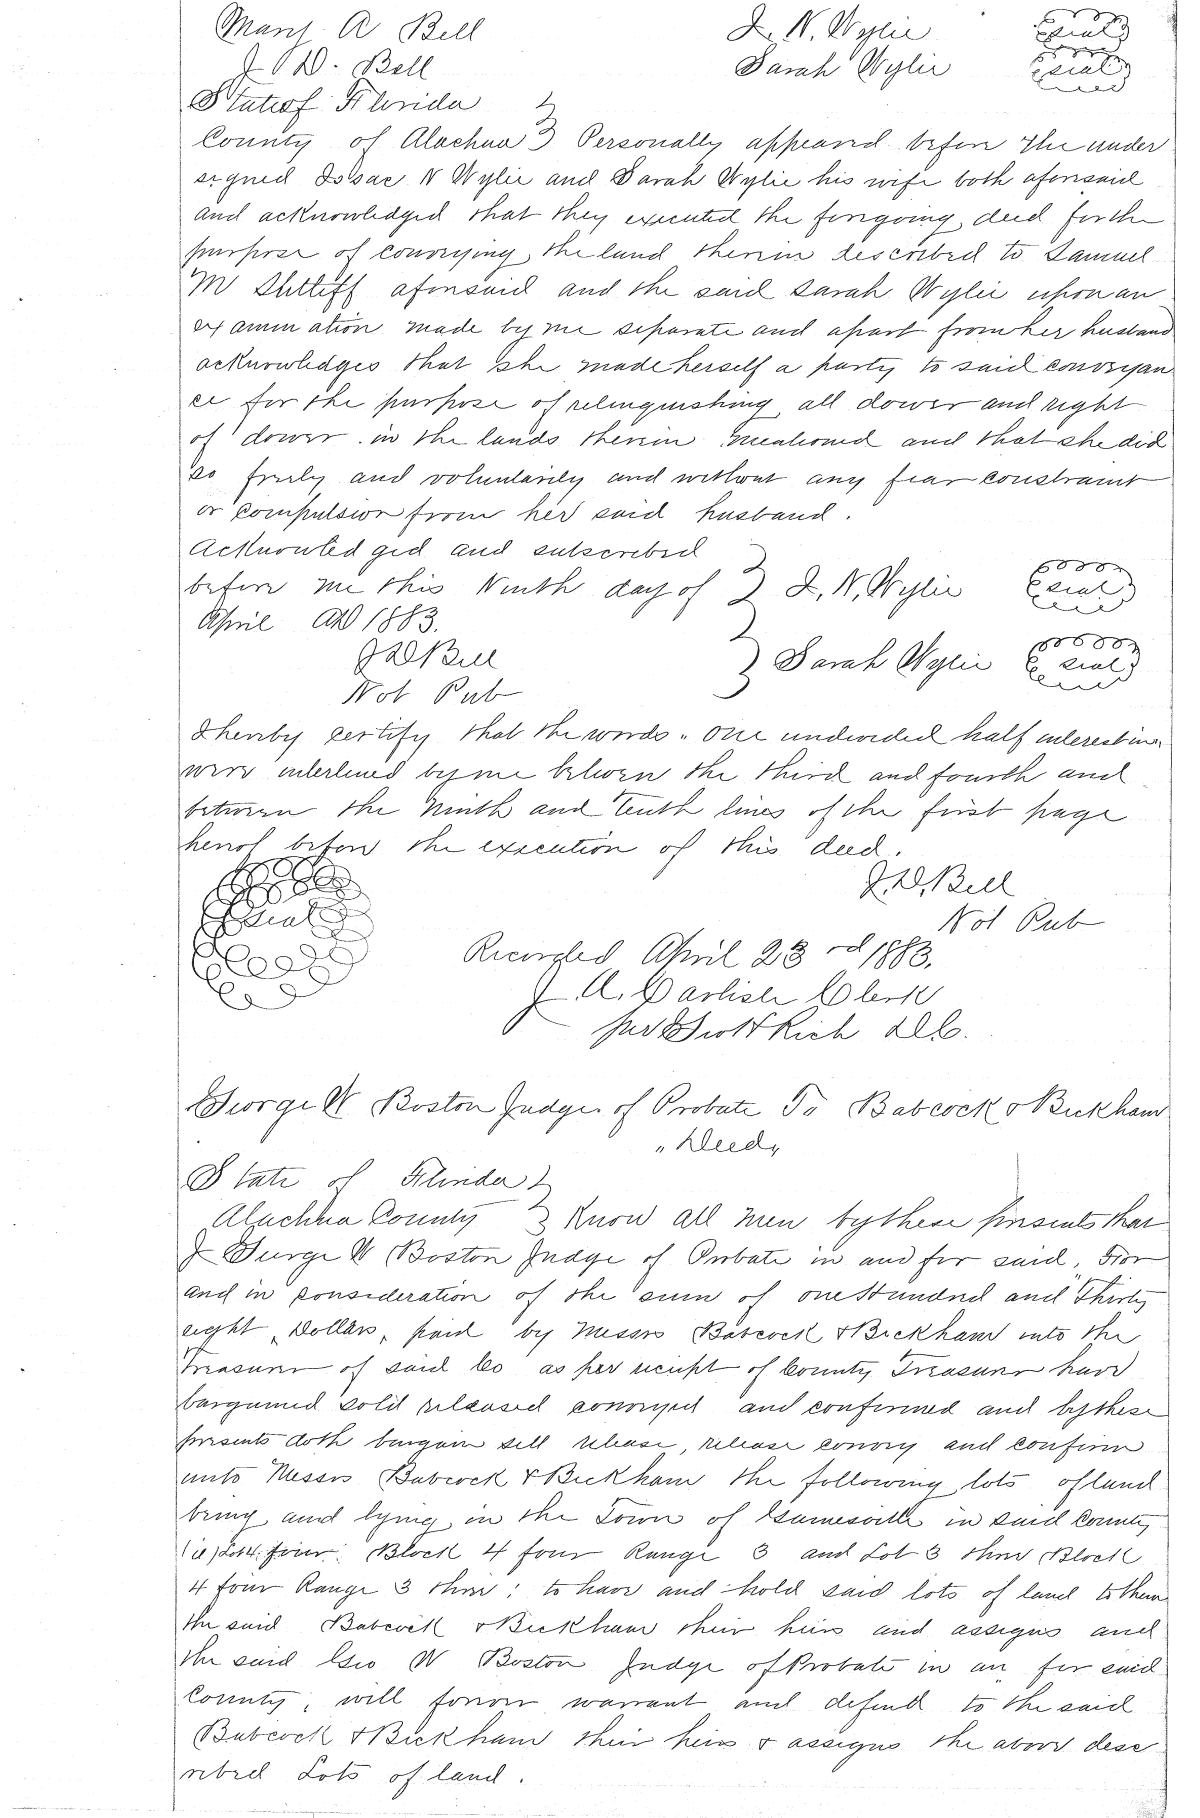 Mary A Bell I. N. Wylie seal
J D. Bell Sarah Wylie seal
State of Florida
County of Alachua Personally appeared before the under
signed Issac N Wylie and Sarah Wylie his wife both aforesaid
and acknowledged that they executed the foregoing deed for the
purpose of conveying the land therein described to Samuel
M aforesaid and the said Sarah Wylie upon an
examination made by me separate and apart from her husband
acknowledges that she made herself a party to said conveyan
ce for the purpose of relinquishing all dower and right
of dower in the lands therein mentioned and that she did
so freely and voluntarily and without any fear constraint
or compulsion from her said husband.
Acknowledged and subscribed
before me this Ninth day of I. N. Wylie seal
April AD 1883.
J D Bell Sarah Wylie seal
Not Pub
I hereby certify that the words "One undivided half interest in"
were interlined by me between the third and fourth and
between the Ninth and Tenth lines of the first page
hereof before the execution of this deed.
J. D. Bell
seal Not Pub
Recorded April 23rd 1883.
J. A. Carlisle Clerk
per Rich D.C.
George W Boston Judge of Probate To Babcock & Bickham
"Deed"
State of Florida
Alachua County Know all men by these presents that
I George W Boston Judge of Probate in and for said, For
and in consideration of the sum of one Hundred and Thirty
eight Dollars, paid by Messrs Babcock & Bickham into the
Treasurer of said Co as per reciept of County Treasurer have
bargained sold released conveyed and confirmed and by these
presents doth bargain sell release, release convey and confirm
unto Messrs Babcock & Bickham the following lots of land
being and lying in the Town of Gainesville in said County
(ie) Lot 4. four. Block 4 four Range 3 and Lot 3 three Block
4 four Range 3 three; to have and hold said lots of land to them
the said Babcock & Bickham their heirs and assigns and
the said Geo W Boston Judge of Probate in an for said
County, will forever warrant and defend to the said
Babcock & Bickham their heirs & assigns the above desc
ribed Lots of land.